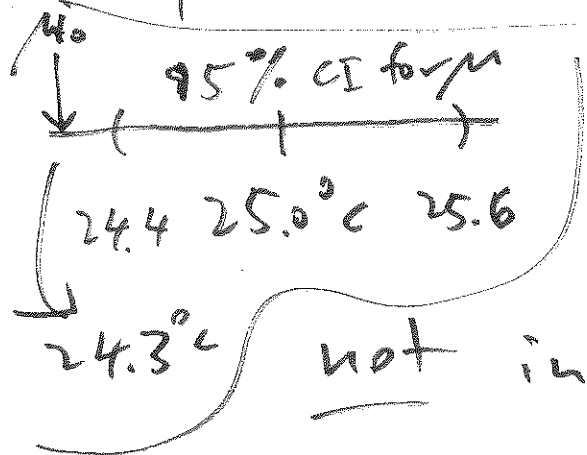 μ₀
95% CI for μ
( | )
24.4 25.0°C 25.6
24.3°C
not in